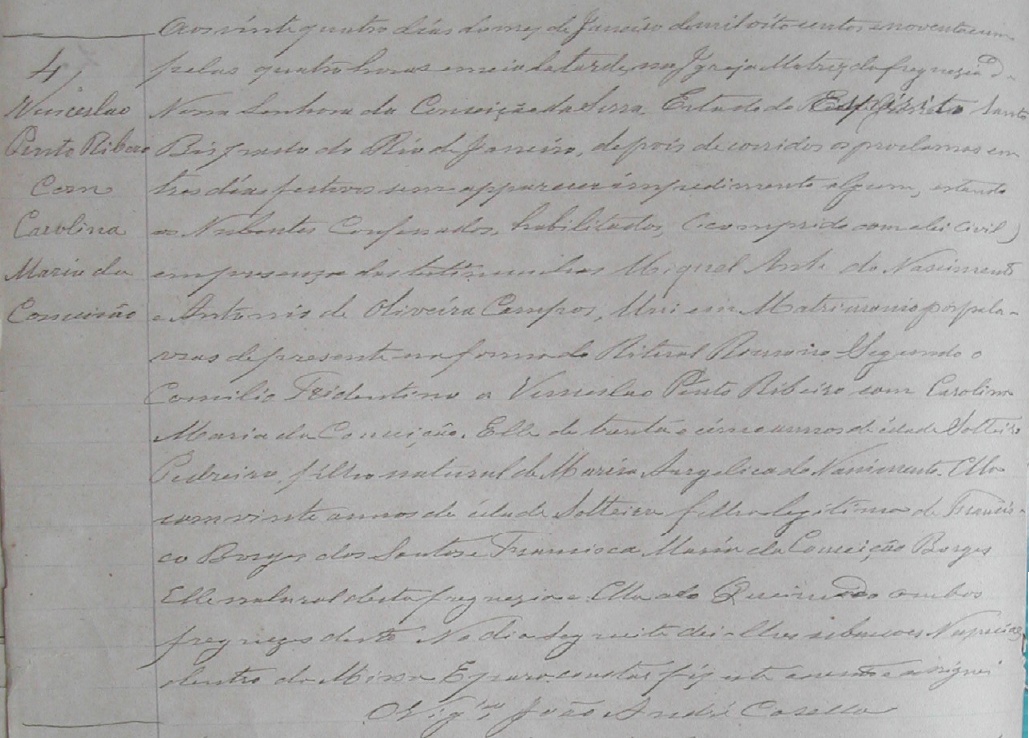 Aos vinte quatro dias do mez de Janeiro de mil oito centos e noventa e um
4,
pelas quatro horas e meia da tarde, na Igreja Matriz da freguezia de
Venceslao
Nossa Senhora da Conceição da Serra Estado do Espirito Santo
Pinto Ribeiro
Bispado do Rio de Janeiro, depois de corridos os proclamas em
Com
tres dias festivos sem apparecer impedimento algum, estando
Carolina
os Nubentes Confessados, habilitados, (comprido com a lei Civil)
Maria da
em presença das testimunhas Miguel Anto do Nascimento
Conceisão
e Antonio de Oliveira Campos, Uni em Matrimonio por pala-
vras de presente na forma do Ritual Romano Segundo o
Concilio Tridentino a Venceslao Pinto Ribeiro com Carolina
Maria da Conceição. Elle de trenta e cinco annos de idade Solteiro
Pedreiro, filho natural de Maria Angelica do Nascimento. Ella
com vinte annos de idade Solteira filha legitima de Francis-
co Borges dos Santos e Francisca Maria da Conceição Borges
Elle natural desta freguezia e Ella do Queimado ambos
freguezes desta No dia seguinte dei-lhes as bensoes Nupciaes
dentro da Missa E para constar fiz este assento e assignei
O Vigro João André Casella